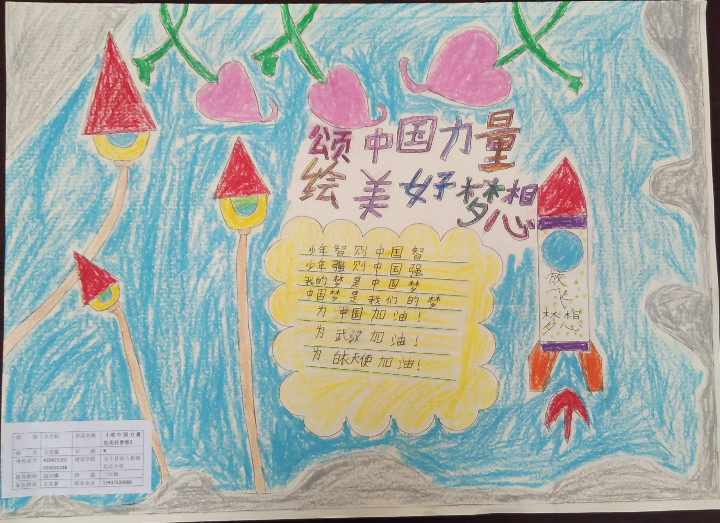 颂中国力量
绘美好梦想
少年智则中国智
少年强则中国强
我的梦是中国梦
中国梦是我们的梦
为中国加油！
为武汉加油！
为白衣天使加油！
放飞
梦想
《颂中国力量
绘美好梦想》